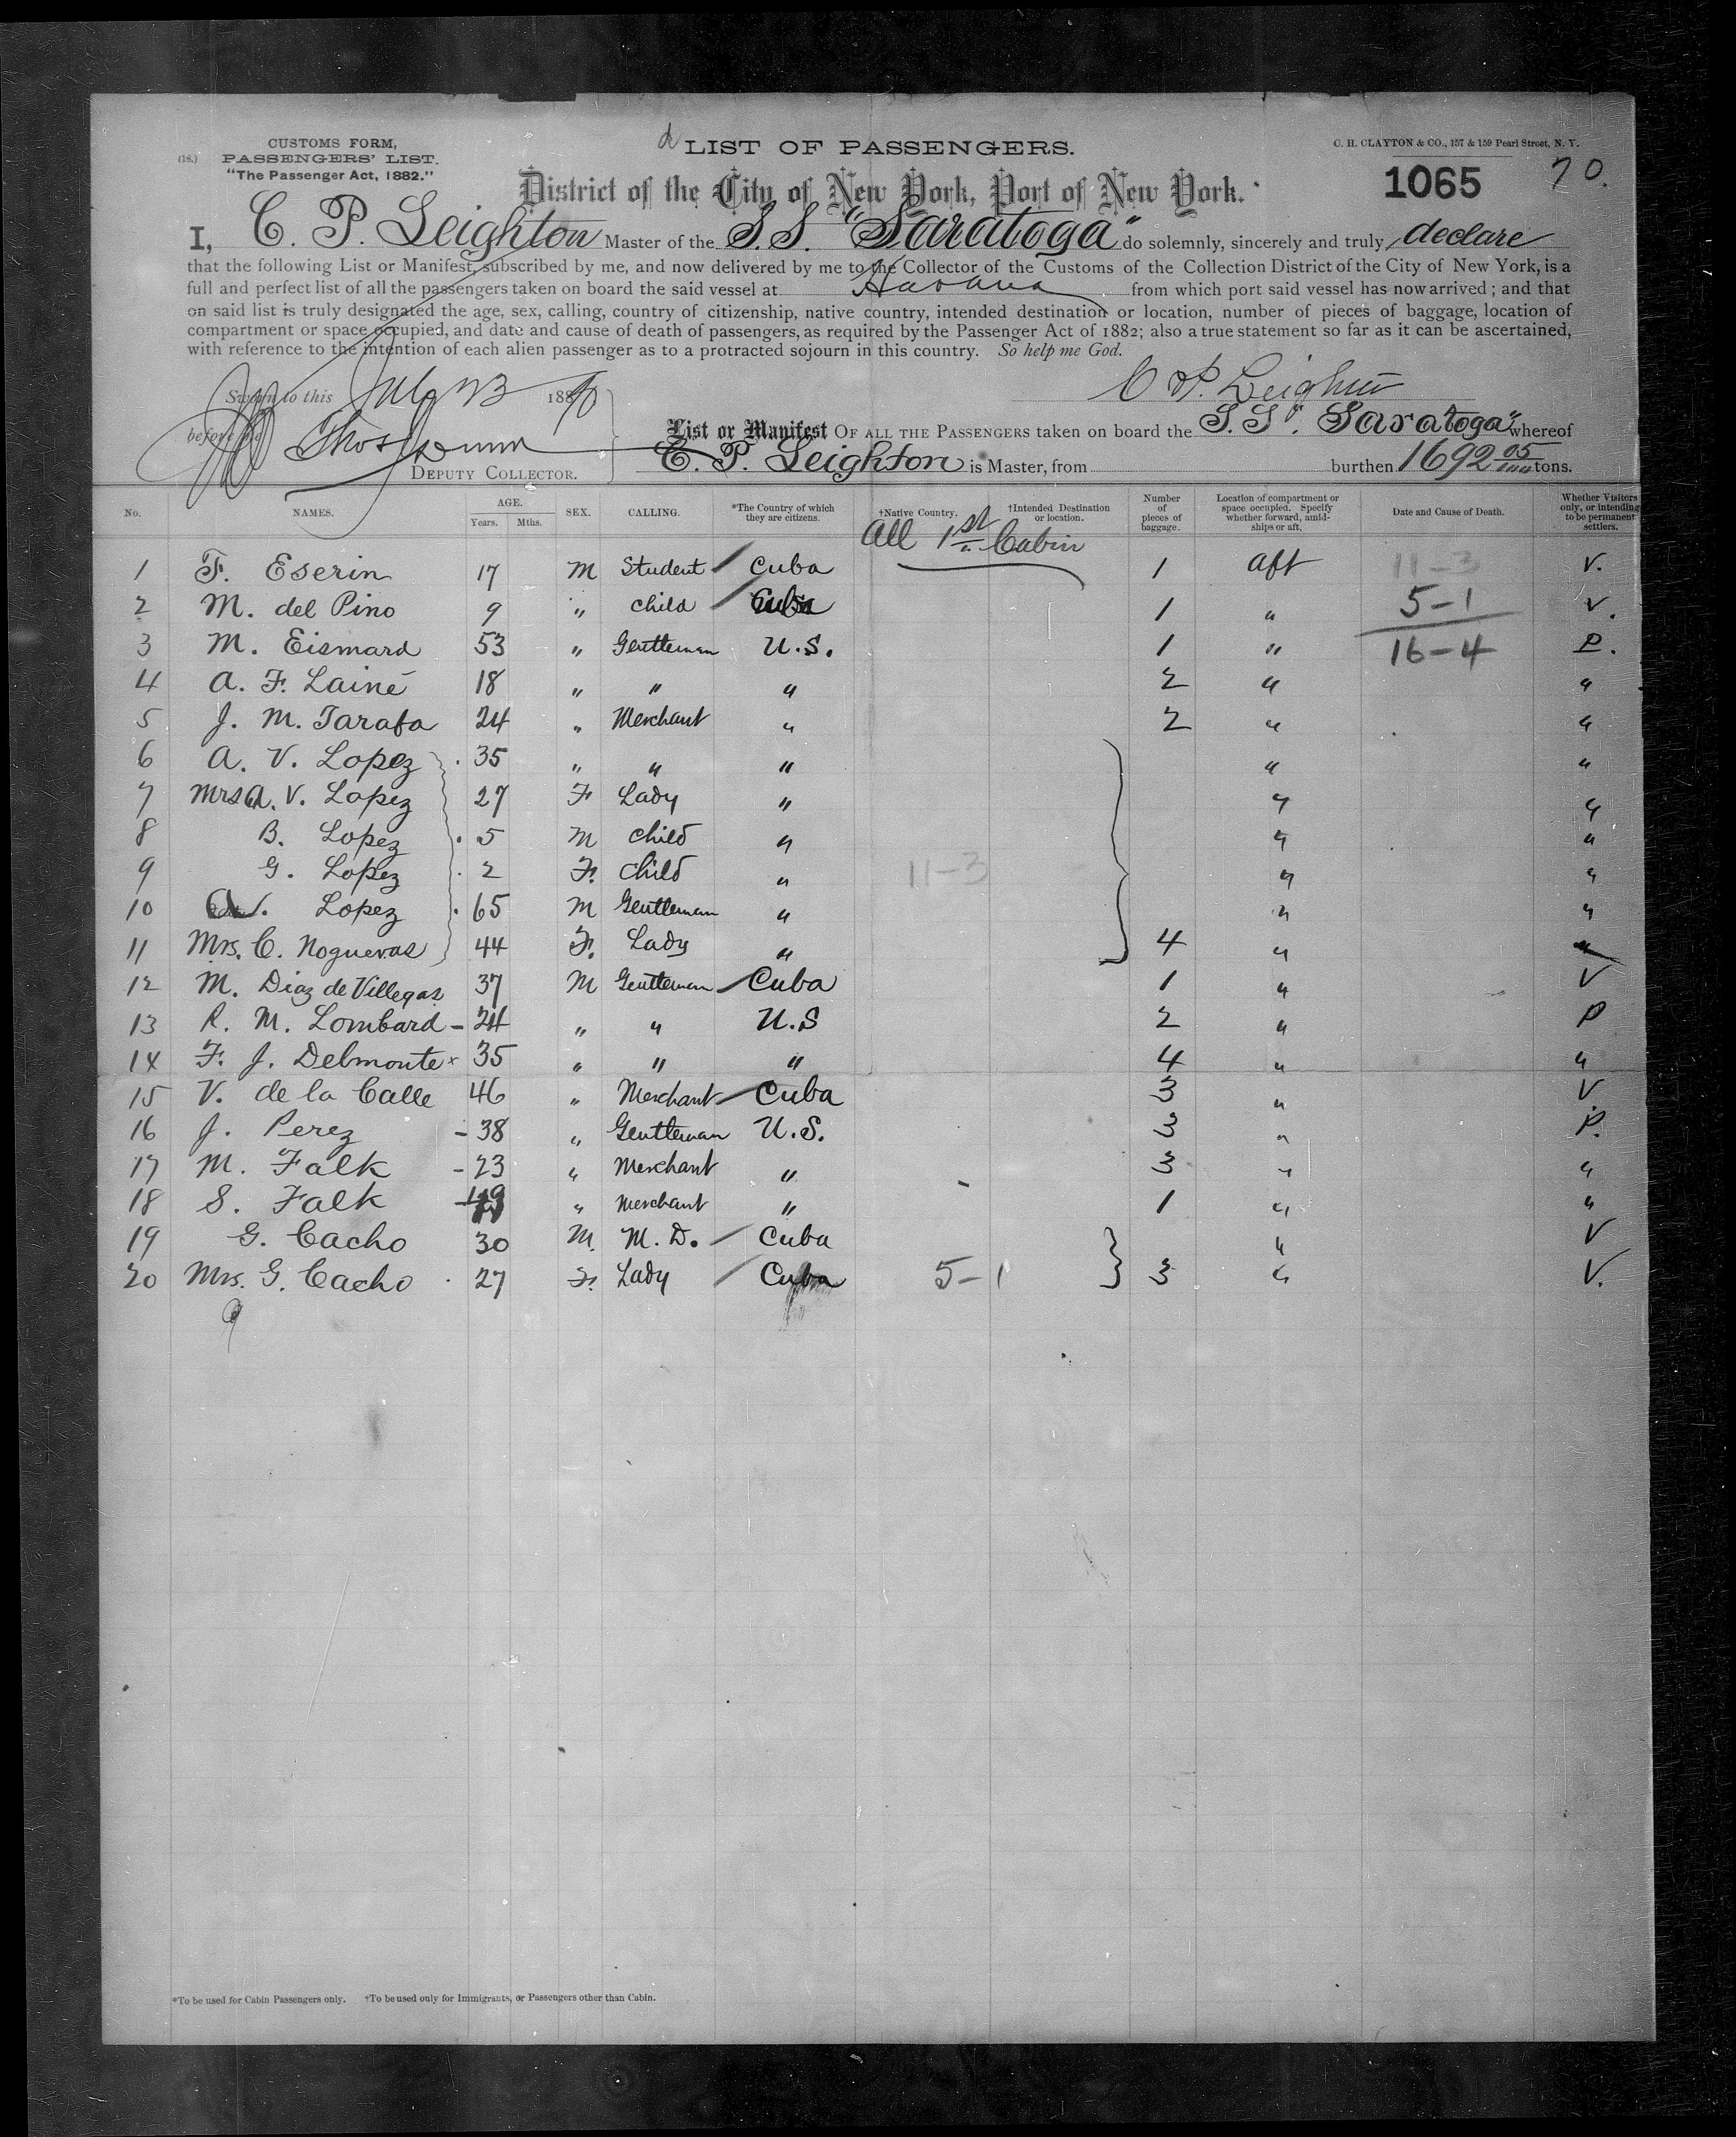 CUSTOMS FORM,
(18.) PASSENGERS' LIST.
"The Passenger Act, 1882."
LIST OF PASSENGERS.
C. H. CLAYTON & CO., 157 & 159 Pearl Street, N. Y.
District of the City of New York, Port of New York.
1065 70.
I, C. P. Leighton Master of the S.S. "Saratoga" do solemnly, sincerely and truly declare
that the following List or Manifest, subscribed by me, and now delivered by me to the Collector of the Customs of the Collection District of the City of New York, is a
full and perfect list of all the passengers taken on board the said vessel at Havana from which port said vessel has now arrived; and that
on said list is truly designated the age, sex, calling, country of citizenship, native country, intended destination or location, number of pieces of baggage, location of
compartment or space occupied, and date and cause of death of passengers, as required by the Passenger Act of 1882; also a true statement so far as it can be ascertained,
with reference to the intention of each alien passenger as to a protracted sojourn in this country. So help me God.
Sworn to this July 23 1890
C P. Leighton
before me Thos Dunn
DEPUTY COLLECTOR.
List or Manifest OF ALL THE PASSENGERS taken on board the S.S. "Saratoga" whereof
C. P. Leighton is Master, from burthen 1692 05/100 tons.
No. NAMES. AGE. Years. Mths. SEX. CALLING. *The Country of which they are citizens. †Native Country. †Intended Destination or location. Number of pieces of baggage. Location of compartment or space occupied. Specify whether forward, amidships or aft. Date and Cause of Death. Whether Visitors only, or intending to be permanent settlers.
All 1st Cabin
1 F. Eserin 17 M Student Cuba 1 aft 11-3 V.
2 M. del Pino 9 " child Cuba 1 " 5-1 V.
3 M. Eismard 53 " Gentleman U.S. 1 " 16-4 P.
4 A. F. Lainé 18 " " " 2 " "
5 J. M. Tarafa 24 " Merchant " 2 " "
6 A. V. Lopez 35 " " " " "
7 Mrs A. V. Lopez 27 F Lady " " "
8 B. Lopez 5 M child " " "
9 G. Lopez 2 F. child " 11-3 " "
10 A. Lopez 65 M Gentleman " " "
11 Mrs. C. Nogueras 44 F. Lady " 4 " "
12 M. Diaz de Villegas 37 M Gentleman Cuba 1 " V
13 R. M. Lombard - 24 " " U.S 2 " P
14 F. J. Delmonte 35 " " " 4 " "
15 V. de la Calle 46 " Merchant Cuba 3 " V.
16 J. Perez - 38 " Gentleman U.S. 3 " P.
17 M. Falk - 23 " Merchant " 3 " "
18 S. Falk - 49 " Merchant " 1 " "
19 G. Cacho 30 M. M. D. Cuba " V
20 Mrs. G. Cacho 27 F. Lady Cuba 5-1 3 " V.
*To be used for Cabin Passengers only. †To be used only for Immigrants, or Passengers other than Cabin.